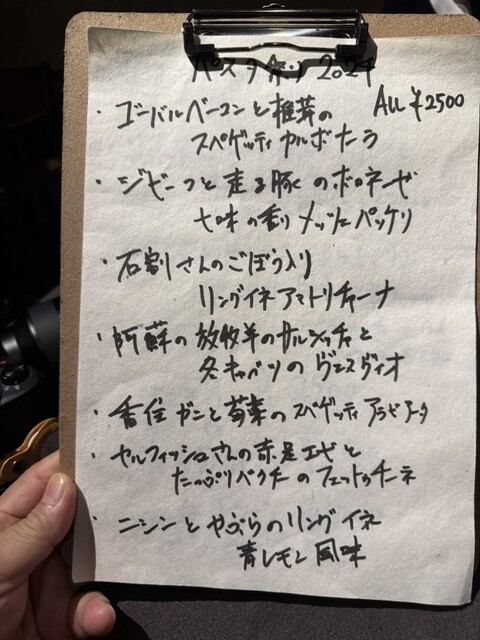 パスタ祭り 2024
ALL ¥2500
・ゴンバルベーコンと椎茸の
スペゲッティ カルボナーラ
・ジビーフと走る豚のボロネーゼ
七味の香り メッツェパッケリ
・石割さんのごぼう入り
リングイネアマトリチャーナ
・阿蘇の放牧羊のサルシッチャと
冬キャベツの
・香住ガニと
のスペゲッティ アラビアータ
・セルフィッシュさんの赤足エビと
たっぷりパクチーのフェットゥチーネ
・ニシンと のリングイネ
青レモン風味